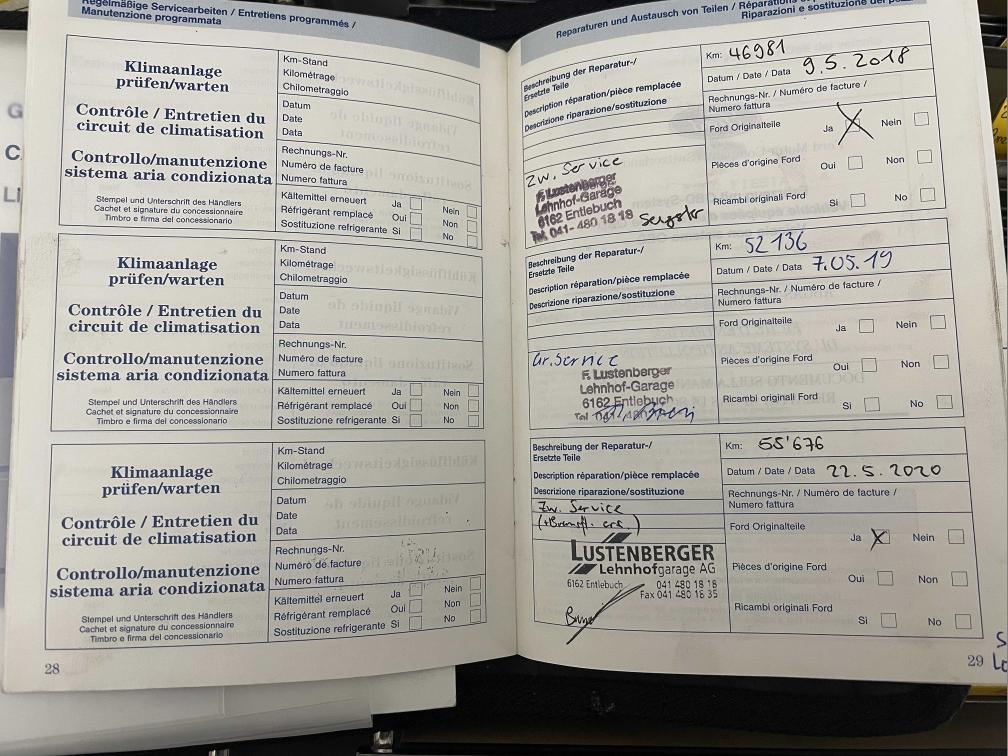 Regelmäßige Servicearbeiten / Entretiens programmés /
Manutenzione programmata
Klimaanlage
prüfen/warten
Contrôle / Entretien du
circuit de climatisation
Controllo/manutenzione
sistema aria condizionata
Stempel und Unterschrift des Händlers
Cachet et signature du concessionnaire
Timbro e firma del concessionario
Km-Stand
Kilométrage
Chilometraggio
Datum
Date
Data
Rechnungs-Nr.
Numéro de facture
Numero fattura
Kältemittel erneuert Ja Nein
Réfrigérant remplacé Oui Non
Sostituzione refrigerante Si No
Klimaanlage
prüfen/warten
Contrôle / Entretien du
circuit de climatisation
Controllo/manutenzione
sistema aria condizionata
Stempel und Unterschrift des Händlers
Cachet et signature du concessionnaire
Timbro e firma del concessionario
Km-Stand
Kilométrage
Chilometraggio
Datum
Date
Data
Rechnungs-Nr.
Numéro de facture
Numero fattura
Kältemittel erneuert Ja Nein
Réfrigérant remplacé Oui Non
Sostituzione refrigerante Si No
Klimaanlage
prüfen/warten
Contrôle / Entretien du
circuit de climatisation
Controllo/manutenzione
sistema aria condizionata
Stempel und Unterschrift des Händlers
Cachet et signature du concessionnaire
Timbro e firma del concessionario
Km-Stand
Kilométrage
Chilometraggio
Datum
Date
Data
Rechnungs-Nr.
Numéro de facture
Numero fattura
Kältemittel erneuert Ja Nein
Réfrigérant remplacé Oui Non
Sostituzione refrigerante Si No
28
Reparaturen und Austausch von Teilen / Réparations
Riparazioni e sostituzione dei
Beschreibung der Reparatur-/
Ersetzte Teile
Description réparation/pièce remplacée
Descrizione riparazione/sostituzione
Zw. Service
F. Lustenberger
Lehnhof-Garage
6162 Entlebuch
Tel. 041- 480 18 18
Km: 46981
Datum / Date / Data 9.5.2018
Rechnungs-Nr. / Numéro de facture /
Numero fattura
Ford Originalteile Ja X Nein
Pièces d'origine Ford Oui Non
Ricambi originali Ford Si No
Beschreibung der Reparatur-/
Ersetzte Teile
Description réparation/pièce remplacée
Descrizione riparazione/sostituzione
Gr. Service
F. Lustenberger
Lehnhof-Garage
6162 Entlebuch
Tel
Km: 52 136
Datum / Date / Data 7.05.19
Rechnungs-Nr. / Numéro de facture /
Numero fattura
Ford Originalteile Ja Nein
Pièces d'origine Ford Oui Non
Ricambi originali Ford Si No
Beschreibung der Reparatur-/
Ersetzte Teile
Description réparation/pièce remplacée
Descrizione riparazione/sostituzione
Zw. Service
(+Bremsfl. ers.)
LUSTENBERGER
Lehnhofgarage AG
6162 Entlebuch 041 480 18 18
Fax 041 480 18 35
Km: 55'676
Datum / Date / Data 22.5.2020
Rechnungs-Nr. / Numéro de facture /
Numero fattura
Ford Originalteile Ja X Nein
Pièces d'origine Ford Oui Non
Ricambi originali Ford Si No
29